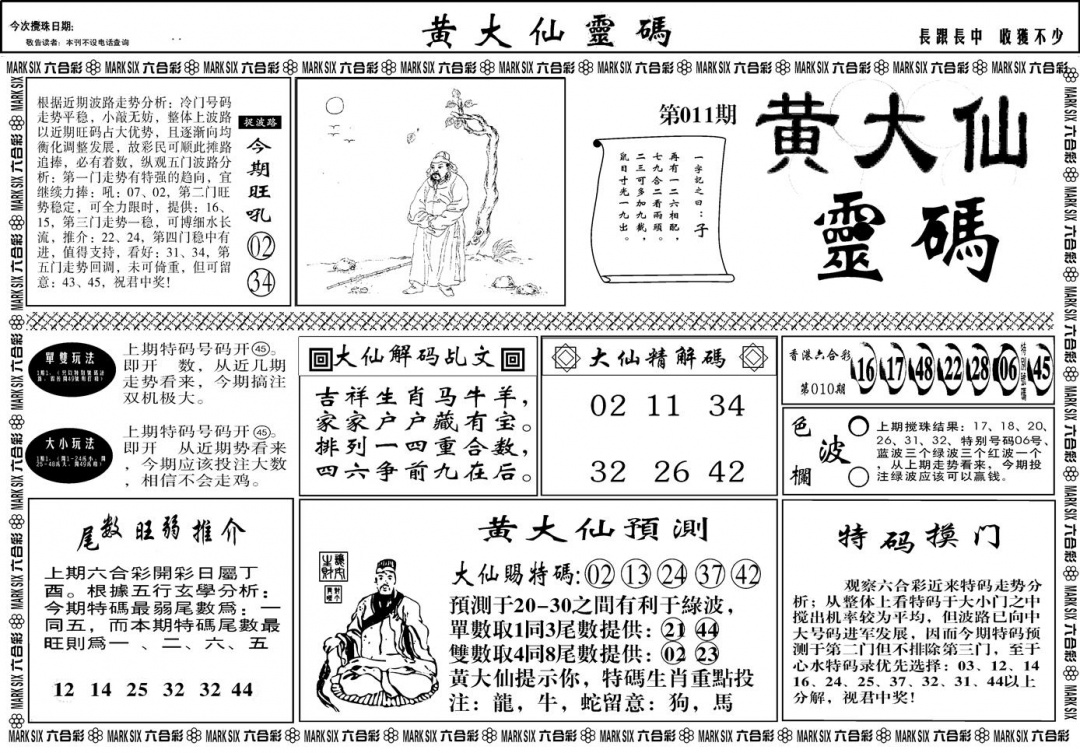 今次攪珠日期:
敬告读者: 本刊不设电话查询
黄大仙靈碼
長跟長中 收獲不少
MARK SIX 六合彩 MARK SIX 六合彩 MARK SIX 六合彩 MARK SIX 六合彩 MARK SIX 六合彩 MARK SIX 六合彩 MARK SIX 六合彩 MARK SIX 六合彩 MARK SIX 六合彩 MARK SIX 六合彩 MARK SIX 六合彩
根据近期波路走势分析: 冷门号码
走势平稳, 小敲无妨, 整体上波路
以近期旺码占大优势, 且逐渐向均
衡化调整发展, 故彩民可顺此摊路
追捧, 必有着数, 纵观五门波路分
析: 第一门走势有特强的趋向, 宜
继续力捧: 吼: 07、02, 第二门旺
势稳定, 可全力限时, 提供: 16、
15, 第三门走势一稳, 可博细水长
流, 推介: 22、24, 第四门稳中有
进, 值得支持, 看好: 31、34, 第
五门走势回调, 未可倚重, 但可留
意: 43、45, 祝君中奖!
捉波路
今期旺吼
02
34
第011期
一字記之曰: 子
再有一二六相配,
七九合二看兩頭。
二三可多加九截,
鼠目寸光一九出。
黄大仙
靈碼
單雙玩法
上期特码号码开㊺。
即开 数, 从近几期
走势看来, 今期搞注
双机极大。
大小玩法
上期特码号码开㊺。
即开 从近期势看来
, 今期应该投注大数
, 相信不会走鸡。
大仙解码乩文
吉祥生肖马牛羊,
家家户户藏有宝。
排列一四重合数,
四六争前九在后。
大仙精解碼
02 11 34
32 26 42
香港六合彩
第010期
16 17 48 22 28 06 特别號碼 45
色波欄
上期搅珠结果: 17、18、20、
26、31、32、特别号码06号、
蓝波三个绿波三个红波一个
, 从上期走势看来, 今期投
注绿波应该可以赢钱。
尾数旺弱推介
上期六合彩開彩日屬丁
酉。根據五行玄學分析:
今期特碼最弱尾數爲: 一
同五, 而本期特碼尾數最
旺則爲一 、二、六、五
12 14 25 32 32 44
黄大仙預測
大仙賜特碼: 02 13 24 37 42
預測于20-30之間有利于綠波,
單數取1同3尾數提供: 21 44
雙數取4同8尾數提供: 02 23
黄大仙提示你, 特碼生肖重點投
注: 龍, 牛, 蛇留意: 狗, 馬
特码摸门
观察六合彩近来特码走势分
析; 从整体上看特码于大小门之中
搅出机率较为平均, 但波路已向中
大号码进军发展, 因而今期特码预
测于第二门但不排除第三门, 至于
心水特码录优先选择: 03、12、14
16、24、25、37、32、31、44以上
分解, 视君中奖!
MARK SIX 六合彩 MARK SIX 六合彩 MARK SIX 六合彩 MARK SIX 六合彩 MARK SIX 六合彩 MARK SIX 六合彩 MARK SIX 六合彩 MARK SIX 六合彩 MARK SIX 六合彩 MARK SIX 六合彩 MARK SIX 六合彩